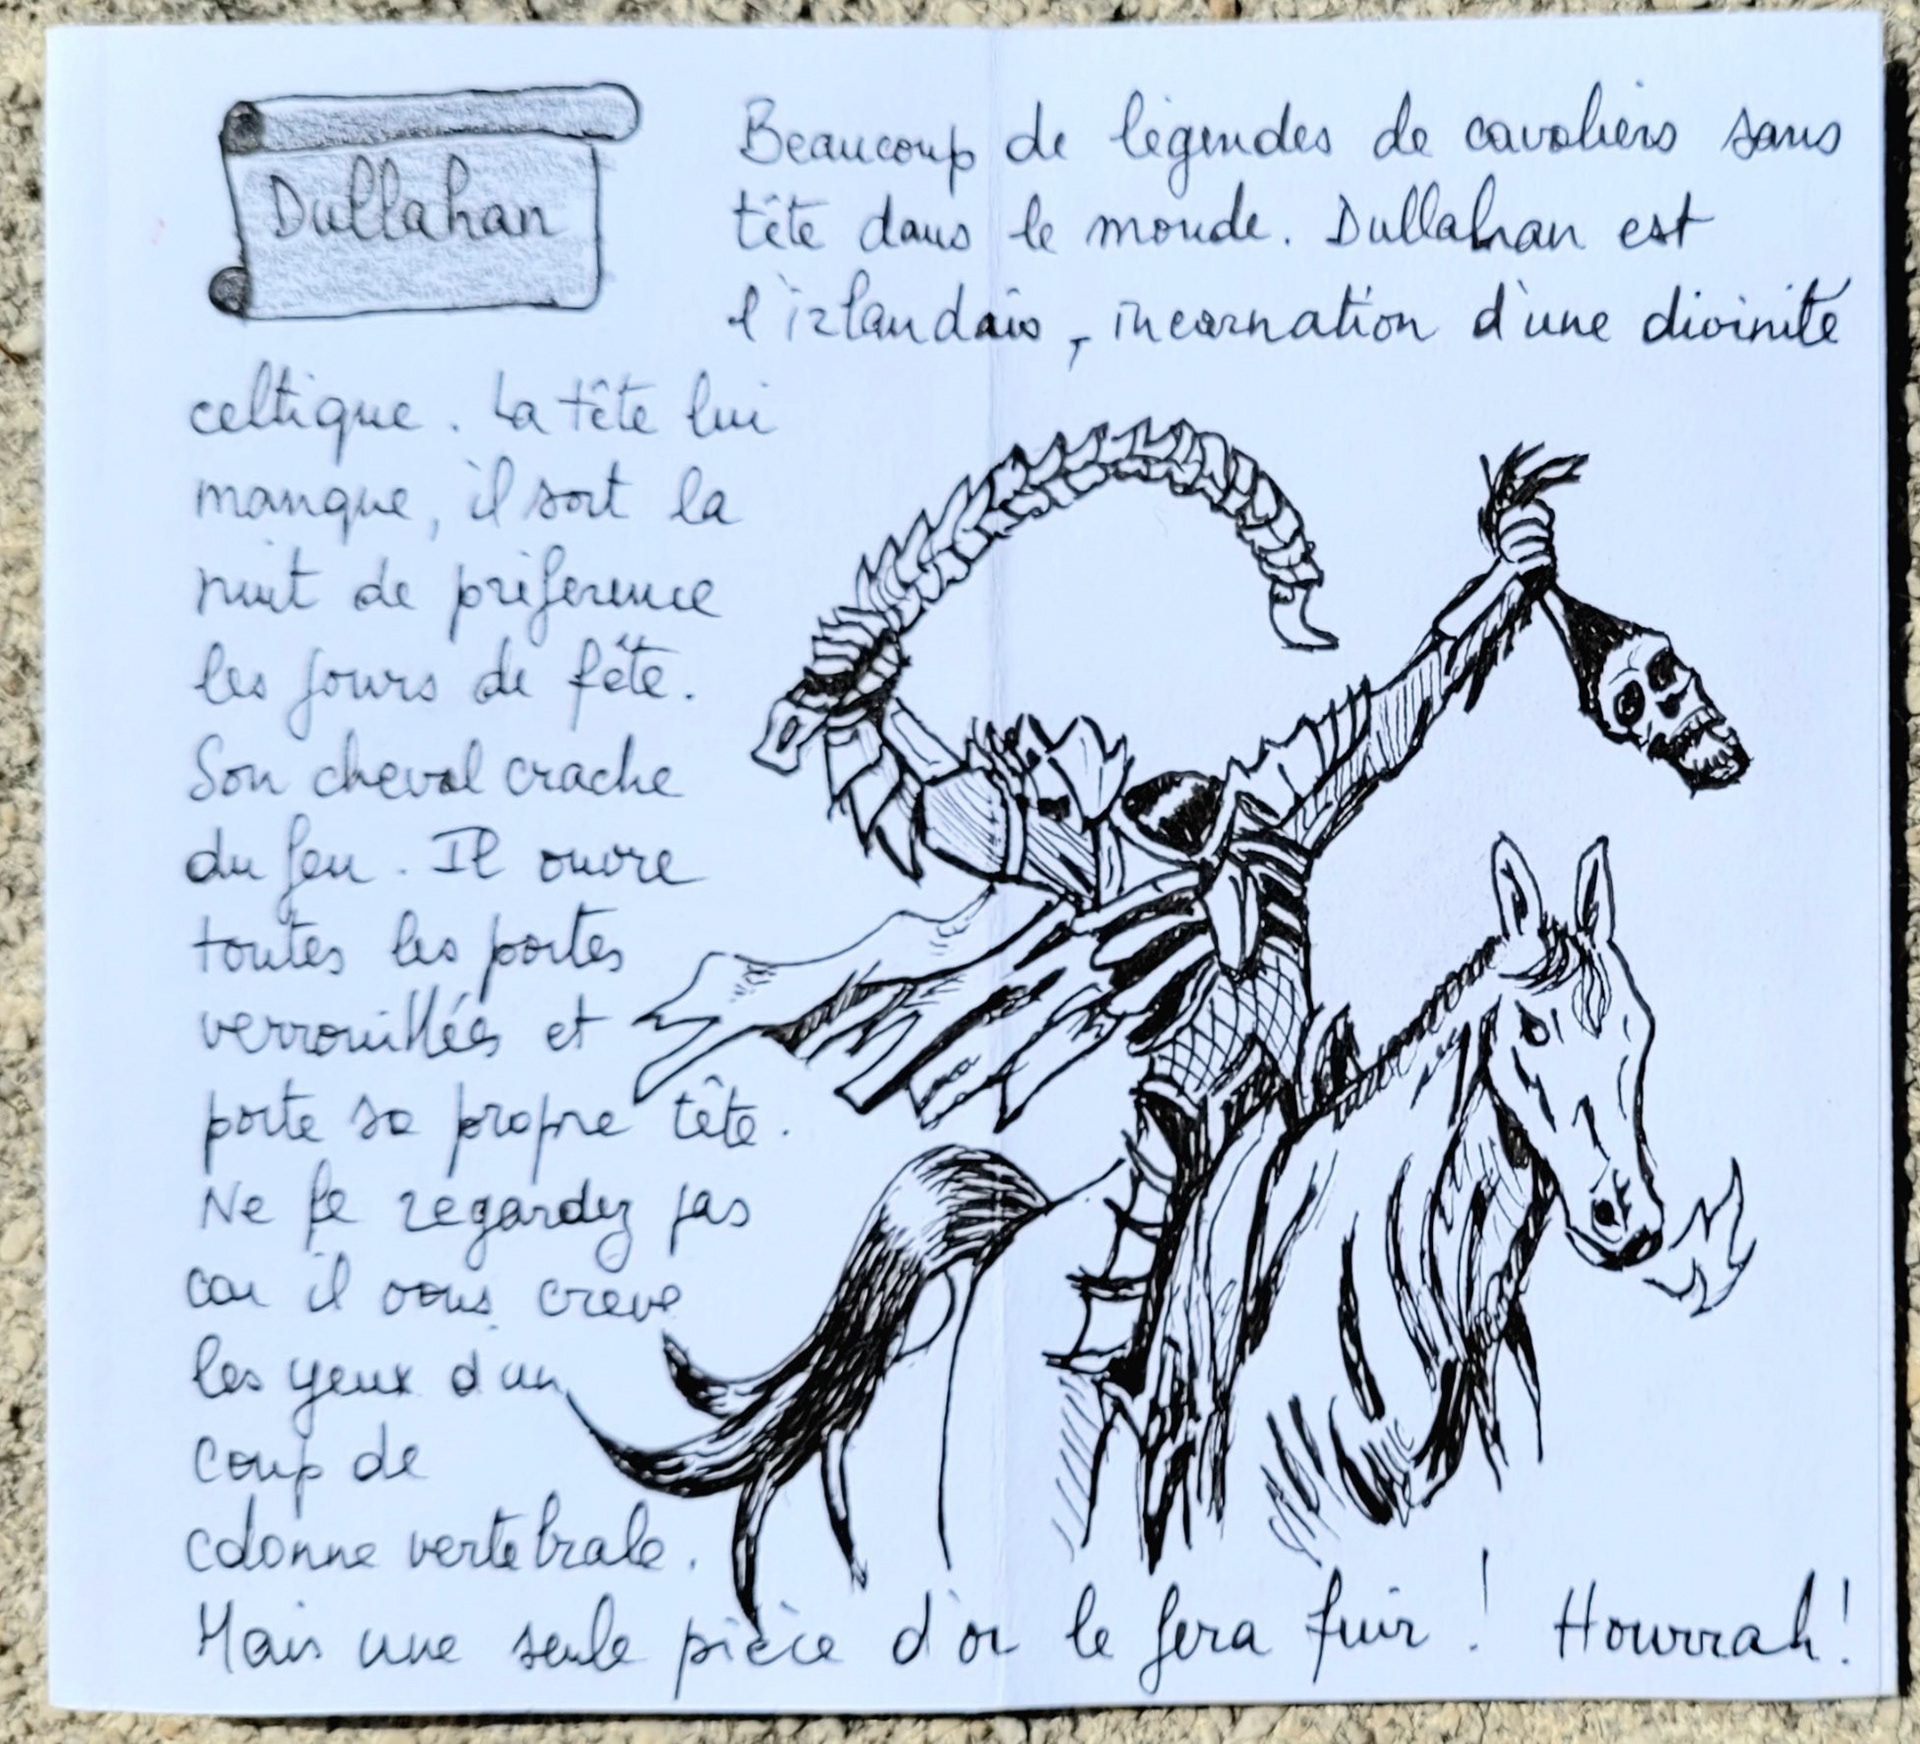 Dullahan
Beaucoup de légendes de cavaliers sans
tête dans le monde. Dullahan est
l'irlandais, incarnation d'une divinité
celtique. La tête lui
manque, il sort la
nuit de préference
les jours de fête.
Son cheval crache
du feu. Il ouvre
toutes les portes
verrouillées et
porte sa propre tête.
Ne le regardez pas
car il vous creve
les yeux d'un
coup de
colonne vertebrale.
Mais une seule pièce d'or le fera fuir ! Hourrah !